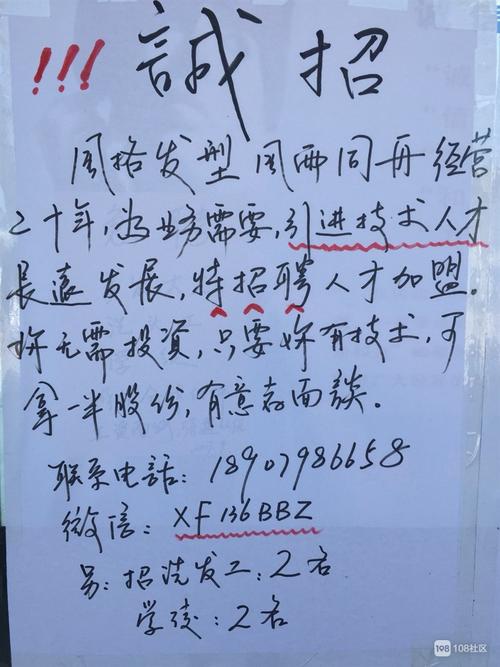 !!! 誠招
风格发型风雨同舟经营
二十年，为业务需要，引进技术人才
長遠发展，特招聘人才加盟。
你无需投资，只要你有技术，可
拿一半股份，有意者面談。
联系电話：18907986658
微信：XF136BBZ
另：招洗发工：2名
学徒：2名
108社区